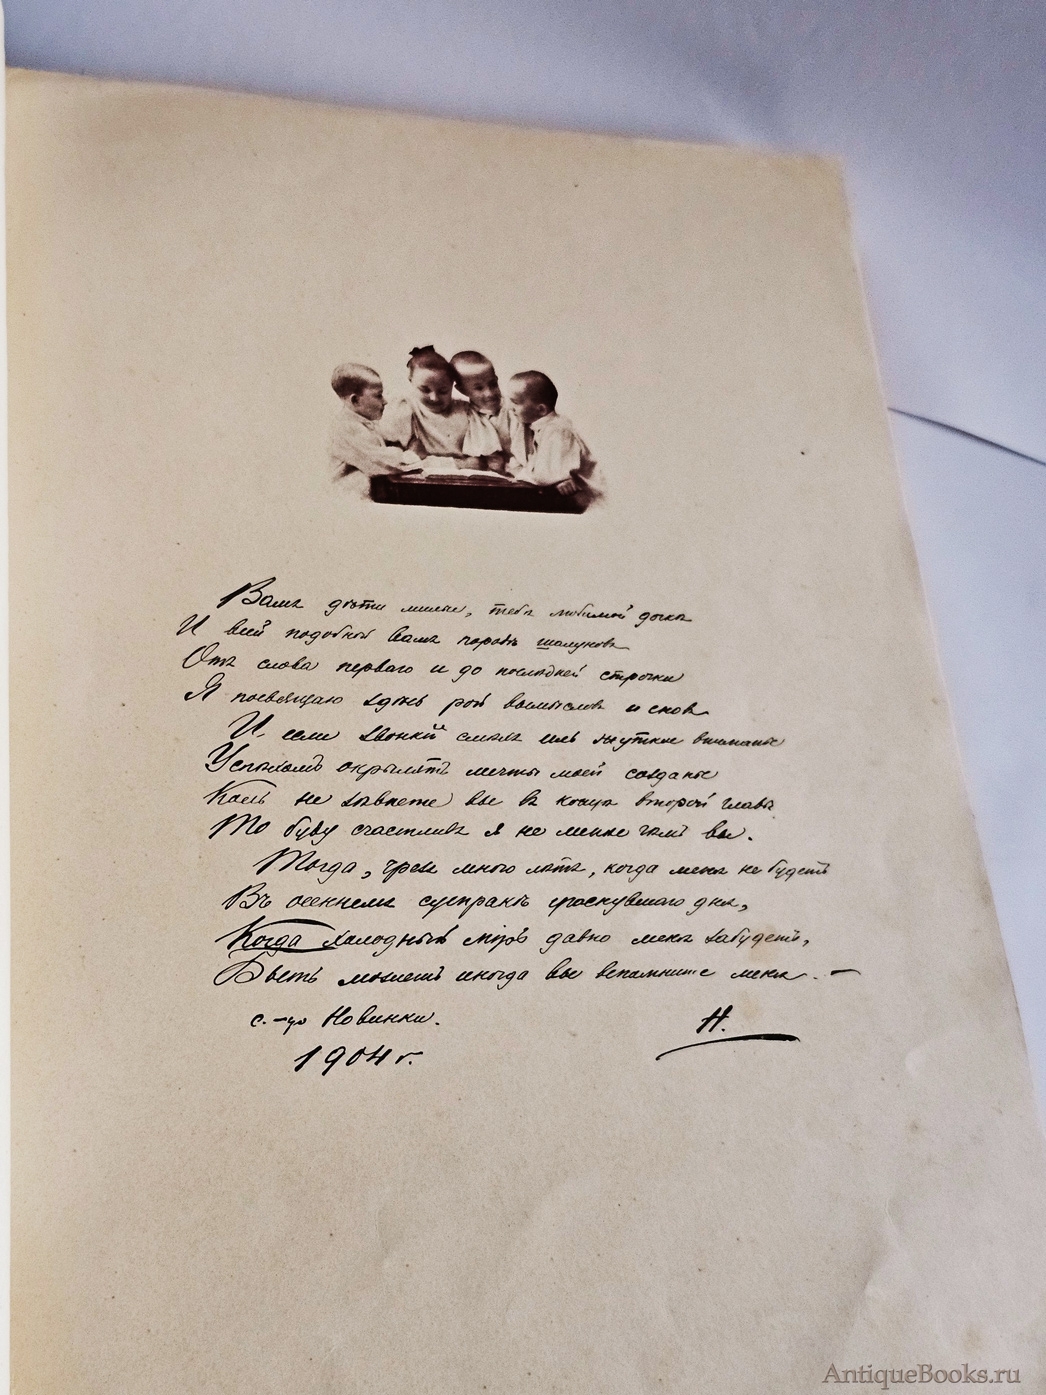 Вамъ дѣти милые, тебѣ любимой дочкѣ
И всей подобной вамъ породѣ шалуновъ
Отъ слова перваго и до послѣдней строчки
Я посвящаю здѣсь рой вымысловъ и сновъ
И если звонкій смѣхъ иль чуткое вниманье
Успѣхомъ окрылятъ мечты моей созданье
Коль не зѣвнете вы въ концѣ второй главы
То буду счастливъ я не менѣе чѣмъ вы.
Тогда, чрезъ много лѣтъ, когда меня не будетъ
Въ осеннемъ сумракѣ дня,
Когда холодный міръ давно меня забудетъ,
Быть можетъ иногда вы вспомните меня. –
с-цо Новинки.
Н.
1904 г.
AntiqueBooks.ru